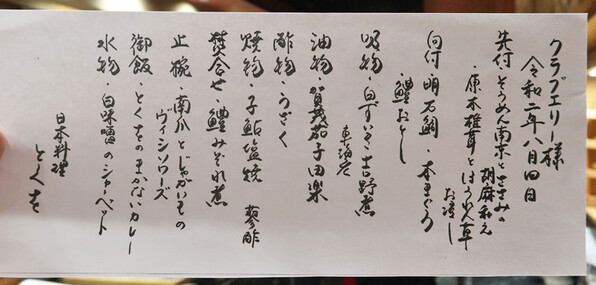 クラブエリー様
令和二年八月四日
先付・そうめん南京とささみの
胡麻和え
・原木椎茸とほうれん草
お浸し
向付・明石鯛・本まぐろ
・鱧おとし
吸物・白ずいき吉野煮
油物・賀茂茄子田楽
酢物・うざく
焼物・子鮎塩焼 蓼酢
焚合せ・鱧みぞれ煮
止椀・南瓜とじゃがいもの
ヴィシソワーズ
御飯・とくをのまかないカレー
水物・白味噌のシャーベット
日本料理
とくを